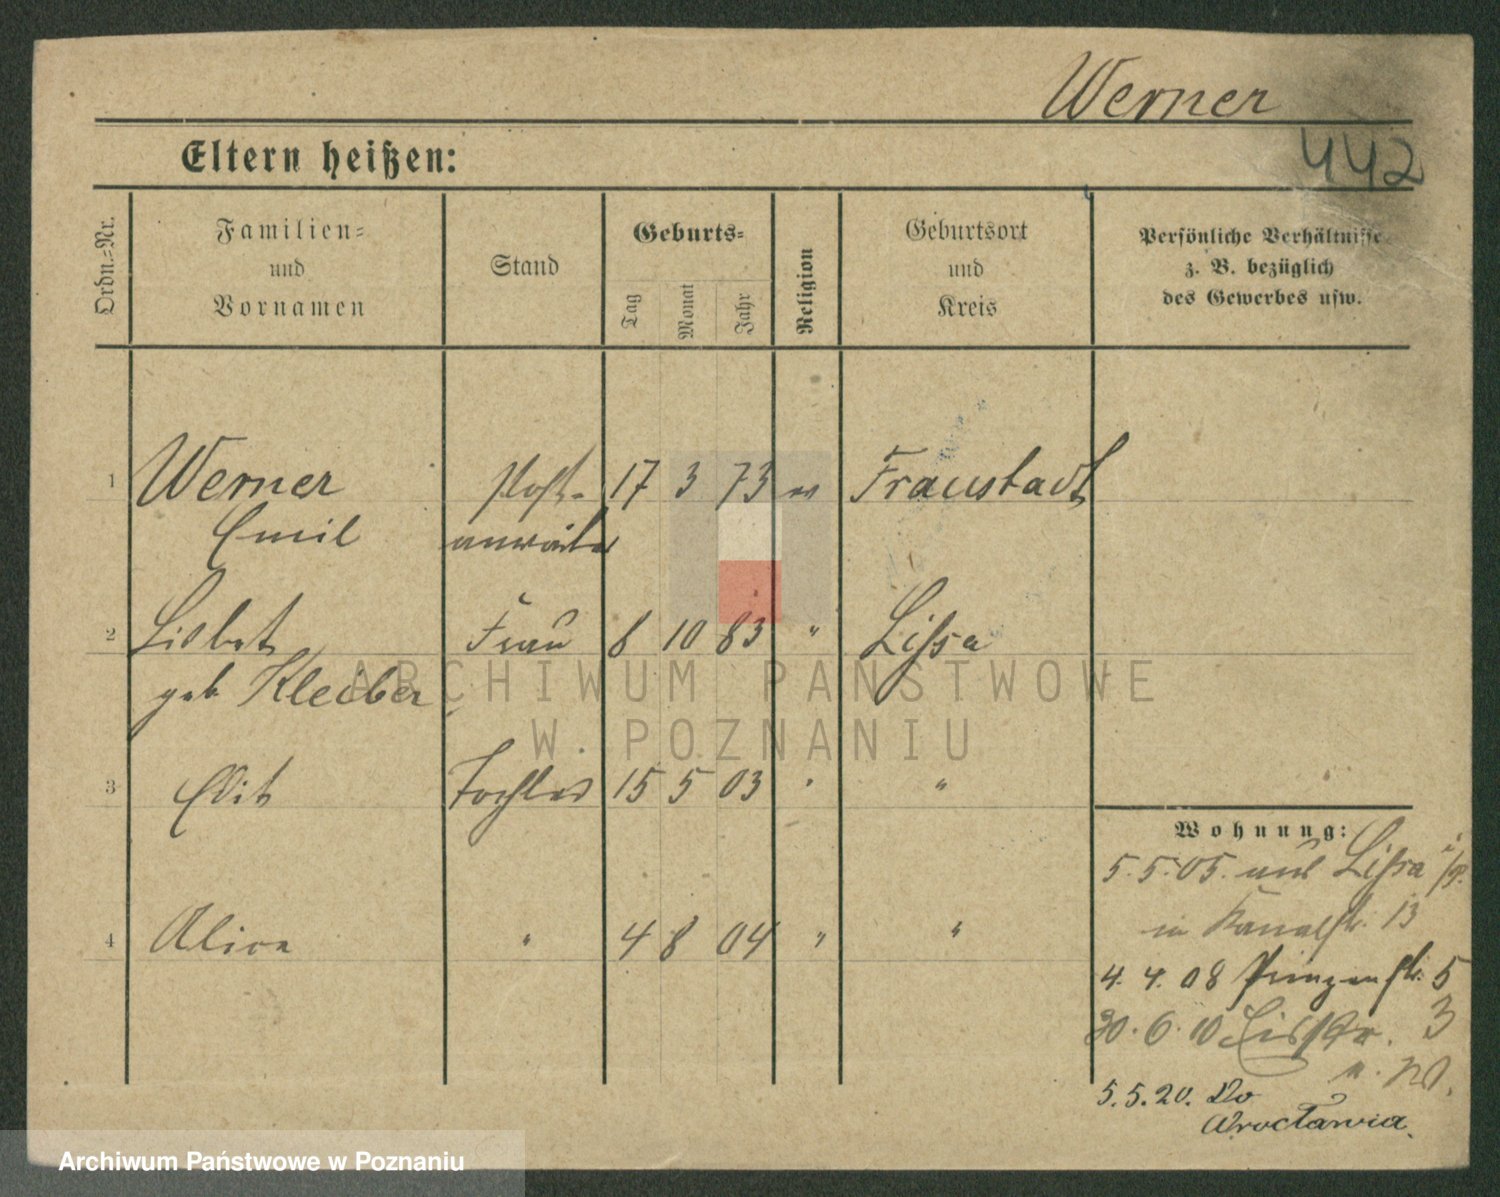 Werner
442
Eltern heißen:
Ordn.-Nr.
Familien-
und
Vornamen
Stand
Geburts-
Tag
Monat
Jahr
Religion
Geburtsort
und
Kreis
Persönliche Verhältnisse
z. B. bezüglich
des Gewerbes usw.
1 Werner Post- 17 3 73 ev Fraustadt
Emil anwärter
2 Lisbet Frau 8 10 83 " Lissa
geb Kleiber
3 Edit Tochter 15 5 03 " "
4 Alice " 4 8 04 " "
Wohnung:
5.5.05. aus Lissa i/P.
in Kanalstr. 13
4. 4. 08 Prinzenstr. 5
30. 6. 10 3
5.5.20. Do
Wrocławia.
ARCHIWUM PAŃSTWOWE
W POZNANIU
Archiwum Państwowe w Poznaniu